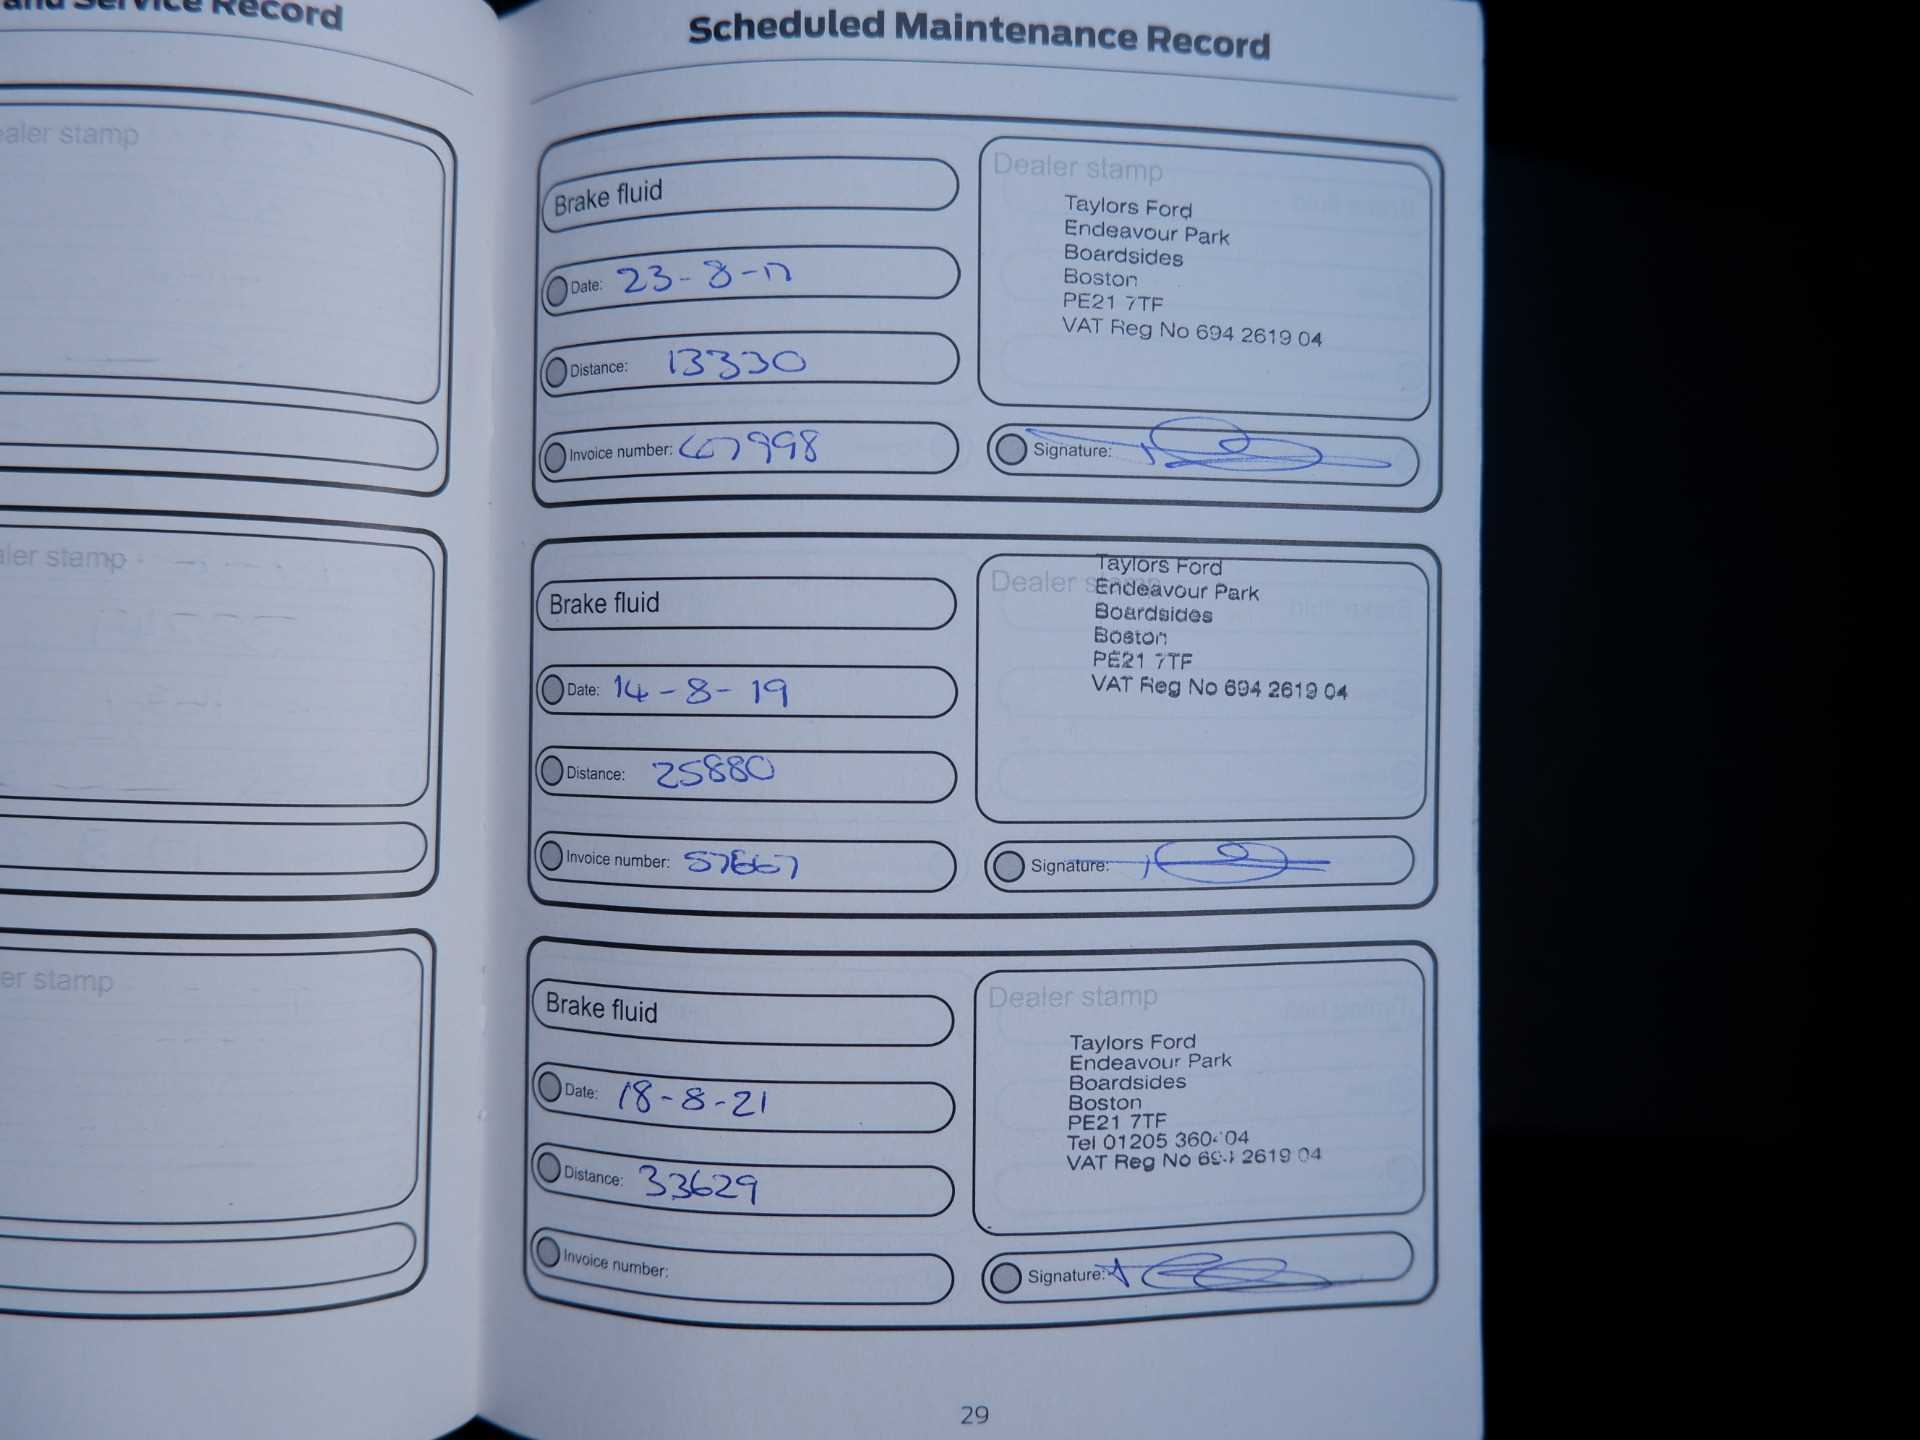 and Service Record
Dealer stamp
Dealer stamp
Dealer stamp
Scheduled Maintenance Record
Brake fluid
Date: 23-8-17
Distance: 13330
Invoice number:
Dealer stamp
Taylors Ford
Endeavour Park
Boardsides
Boston
PE21 7TF
VAT Reg No 694 2619 04
Signature:
Brake fluid
Date: 14-8-19
Distance: 25880
Invoice number: 57667
Dealer stamp
Taylors Ford
Endeavour Park
Boardsides
Boston
PE21 7TF
VAT Reg No 694 2619 04
Signature:
Brake fluid
Date: 18-8-21
Distance: 33629
Invoice number:
Dealer stamp
Taylors Ford
Endeavour Park
Boardsides
Boston
PE21 7TF
Tel 01205
VAT Reg No 694 2619 04
Signature:
29